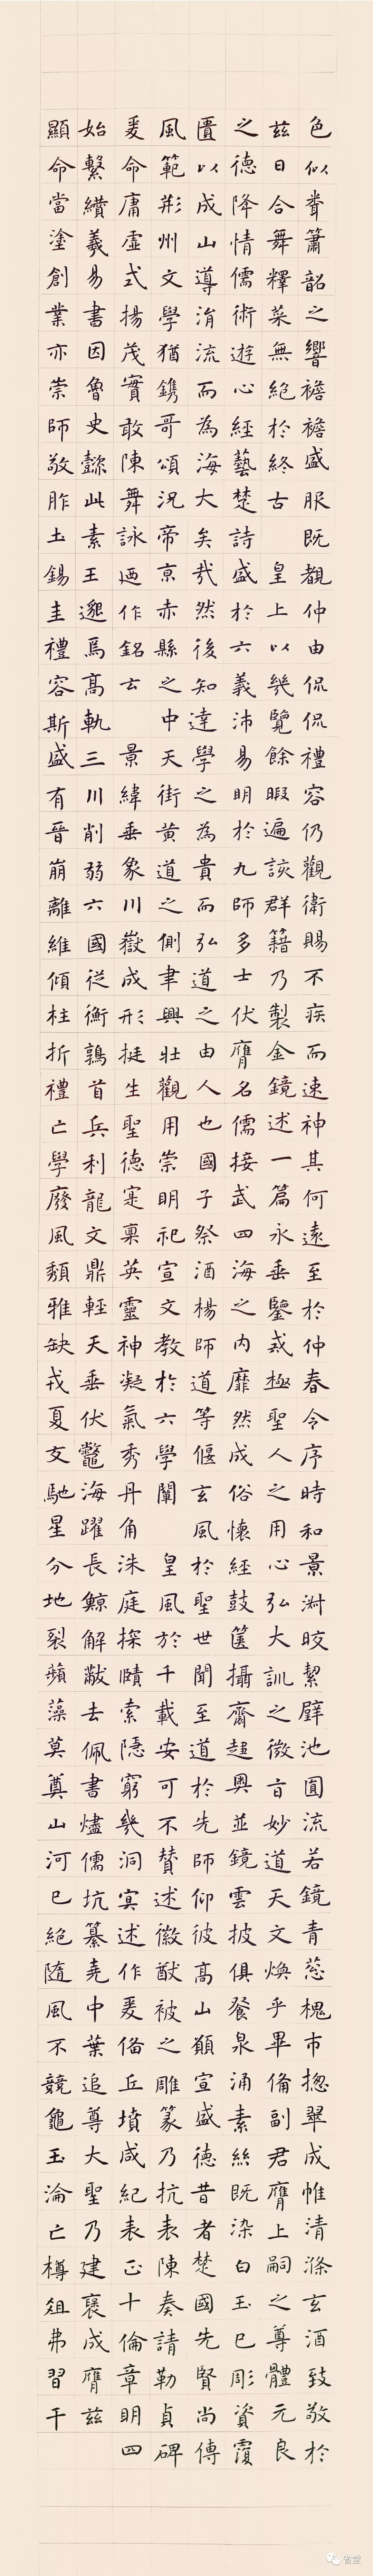 色似聾簫韶之響襜襜盛服既覩仲由侃侃禮容仍觀衛賜不疾而速神其何遠至於仲春令序時和景淑皎絜璧池圓流若鏡青葱槐市揔翠成帷清滌玄酒致敬於
茲日合舞釋菜無絕於終古 皇上以幾覽餘暇遍該群籍乃製金鏡述一篇永垂鑒戒極聖人之用心弘大訓之微旨妙道天文煥乎畢備副君膺上嗣之尊體元良
之德降情儒術遊心經藝楚詩盛於六義沛易明於九師多士伏膺名儒接武四海之內靡然成俗懷經鼓篋攝齋趍奧並鏡雲披俱餐泉涌素絲既染白玉已彫資覆
匱以成山導涓流而為海大矣哉然後知達學之為貴而弘道之由人也國子祭酒楊師道等偃玄風於聖世聞至道於先師仰彼高山願宣盛德昔者楚國先賢尚傳
風範荊州文學猶鐫哥頌況帝京赤縣之中天街黃道之側聿興壯觀用崇明祀宣文教於六學闡 皇風於千載安可不贊述徽猷被之雕篆乃抗表陳奏請勒貞碑
爰命庸虛式揚茂實敢陳舞詠迺作銘云 景緯垂象川嶽成形挺生聖德寔稟英靈神凝氣秀丹角洙庭探賾索隱窮幾洞冥述作爰備丘墳咸紀表正十倫章明四
始繫纘羲易書因魯史懿此素王邈焉高軌三川削弱六國從衡鶉首兵利龍文鼎輕天垂伏鼈海躍長鯨解黻去佩書燼儒坑纂堯中葉追尊大聖乃建褒成膺茲
顯命當塗創業亦崇師敬胙土錫圭禮容斯盛有晉崩離維傾柱折禮亡學廢風頹雅缺戎夏交馳星分地裂蘋藻莫奠山河已絕隨風不競龜玉淪亡樽俎弗習干
省堂